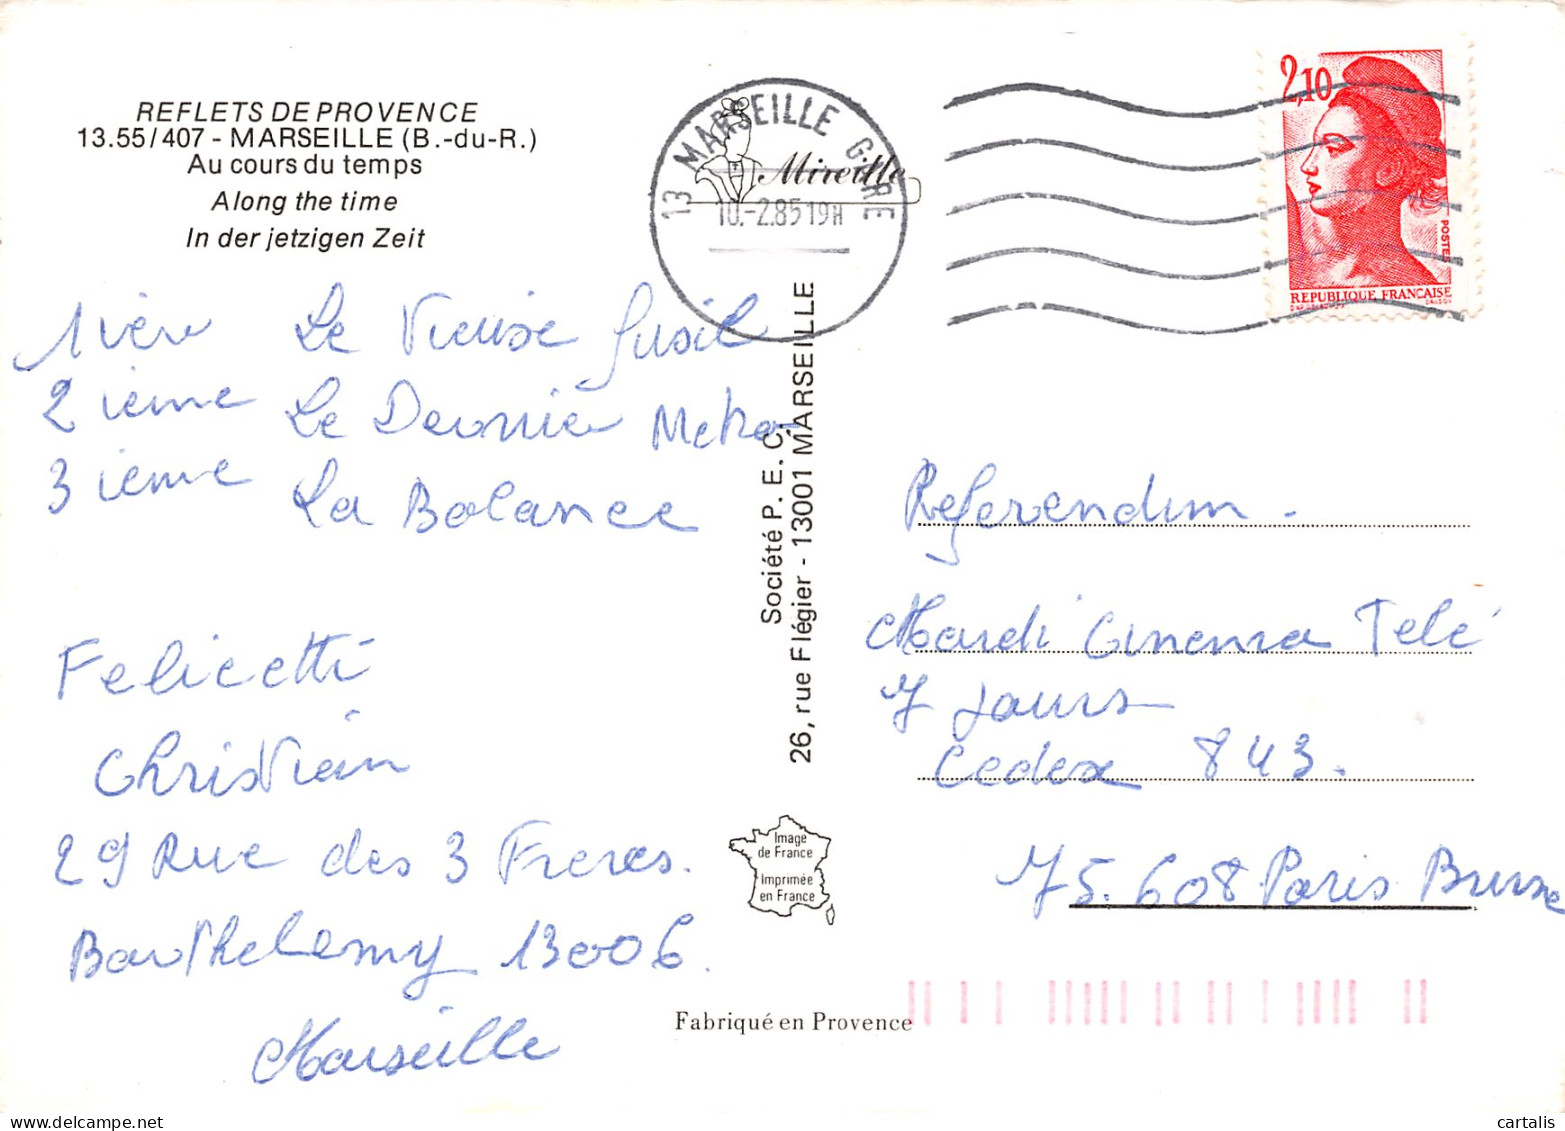 REFLETS DE PROVENCE
13.55/407 - MARSEILLE (B.-du-R.)
Au cours du temps
Along the time
In der jetzigen Zeit
1ière Le Vieuse fusil
2 ieme Le Dernier Metro
3 ieme La Balance
Felicetti
Christian
29 Rue des 3 Freres.
Barthelemy 13006.
Marseille
Mireille
13 MARSEILLE GARE
10.-2.85 19H
Société P.E.C.
26, rue Flégier - 13001 MARSEILLE
Image
de France
Imprimée
en France
Fabriqué en Provence
2,10
POSTES
REPUBLIQUE FRANÇAISE
Referendum -
Mardi Cinema Telé
7 Jours
Cedex 843.
75.608 Paris Brune
delcampe.net
cartalis